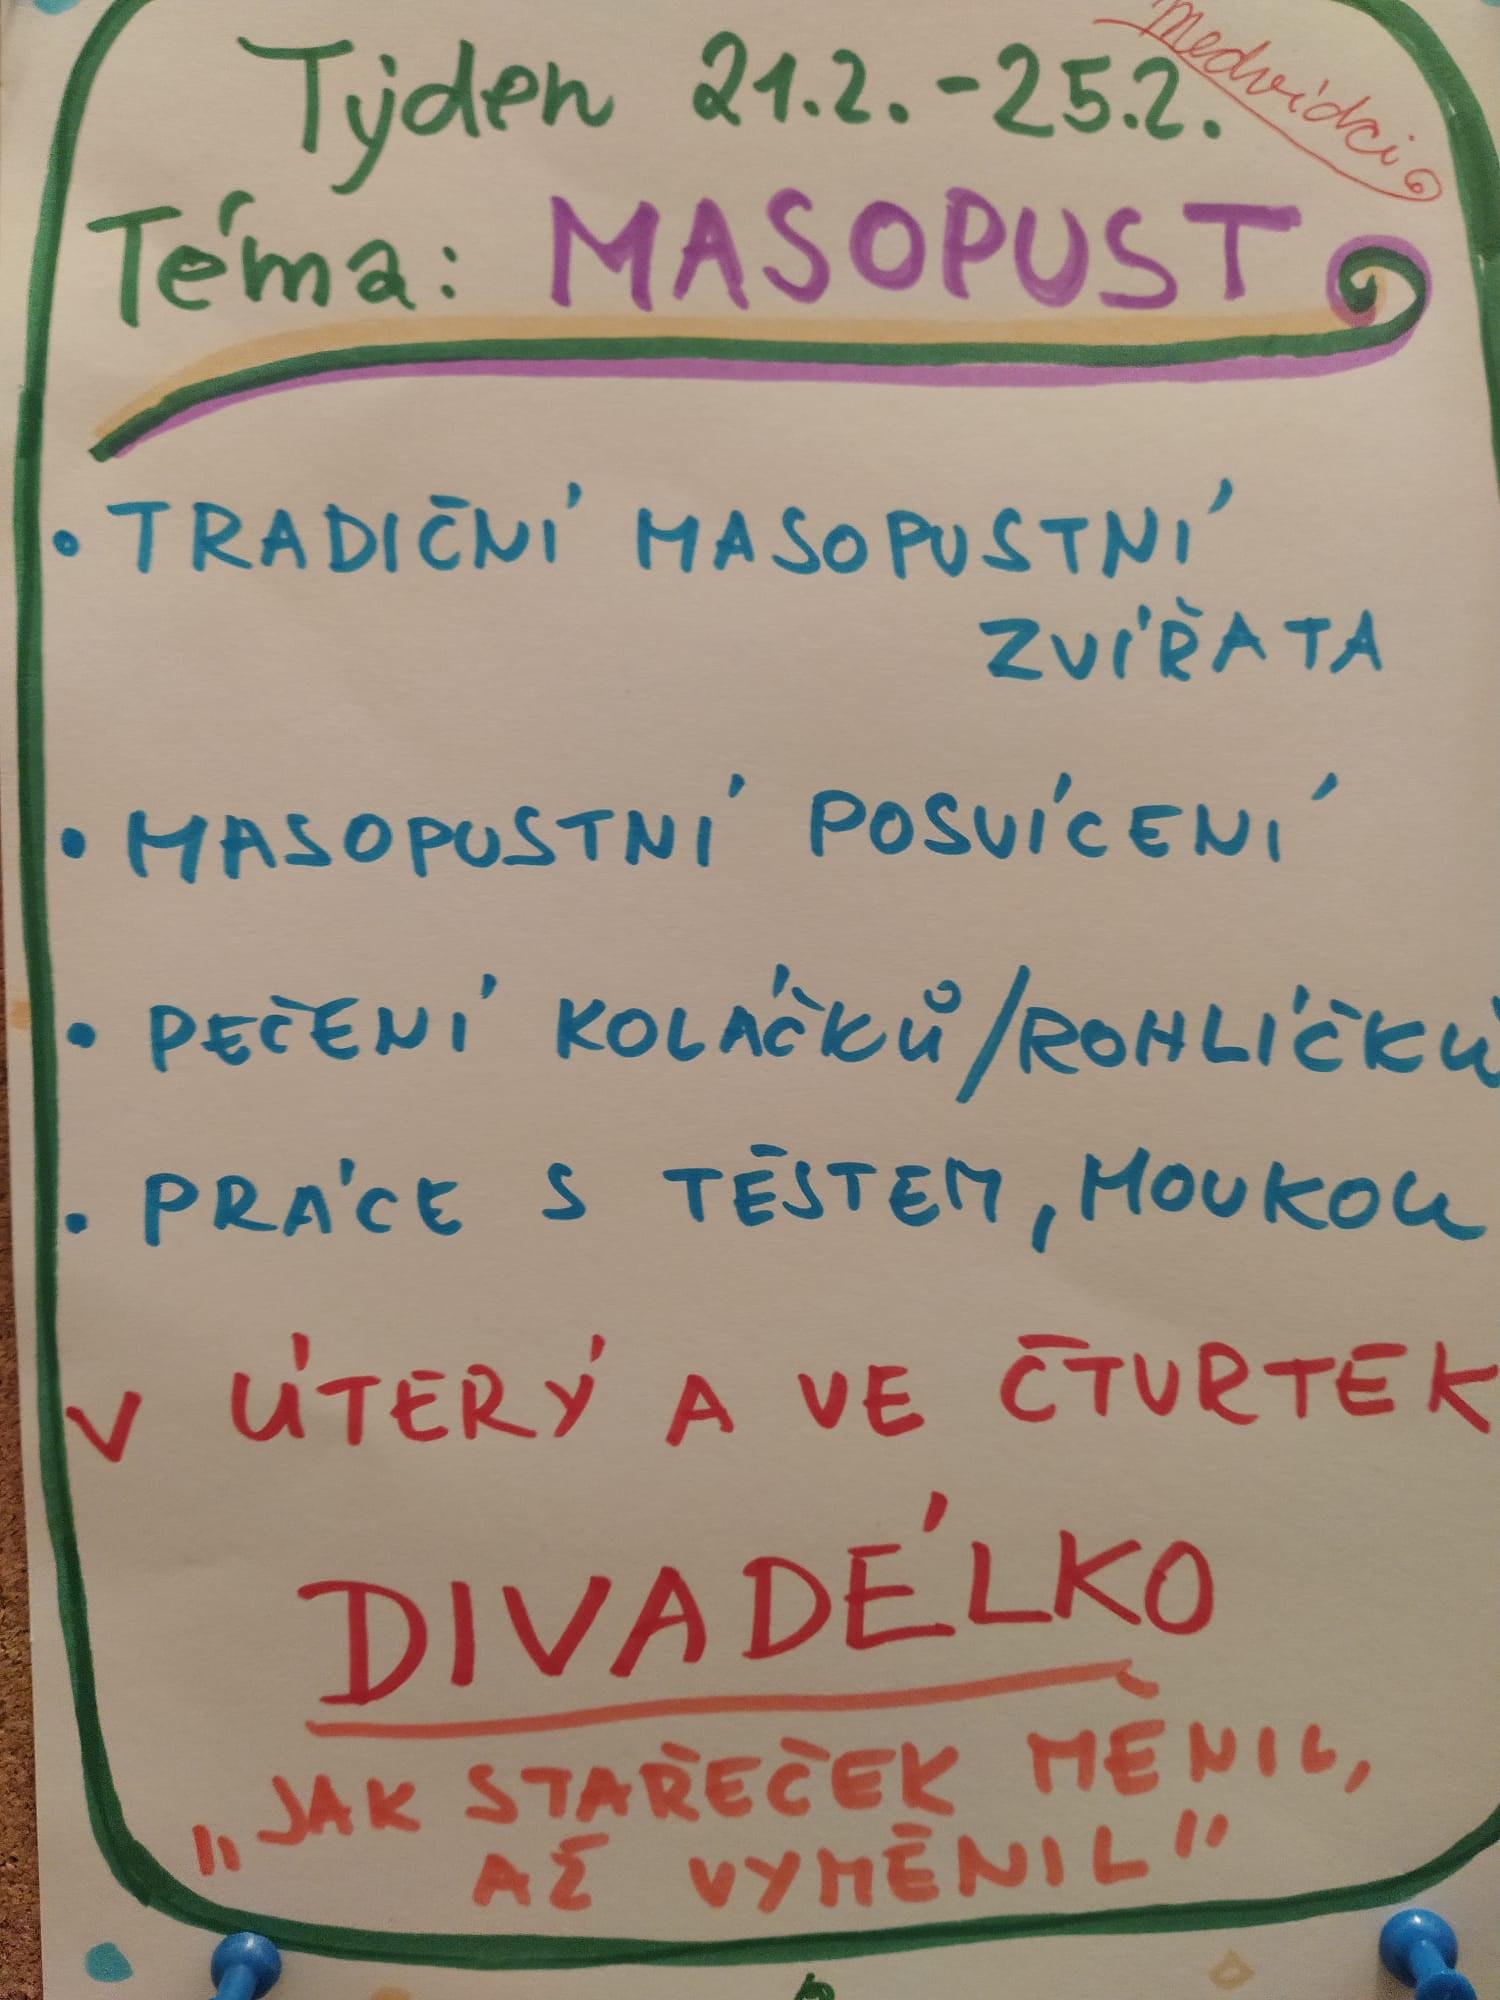 Medvídci
Týden 21.2. - 25.2.
Téma: MASOPUST
• TRADIČNÍ MASOPUSTNÍ
ZVÍŘATA
• MASOPUSTNÍ POSVÍCENÍ
• PEČENÍ KOLÁČKŮ/ROHLÍČKŮ
• PRÁCE S TĚSTEM, MOUKOU
V ÚTERÝ A VE ČTVRTEK
DIVADÉLKO
„JAK STAŘEČEK MĚNIL,
AŽ VYMĚNIL"